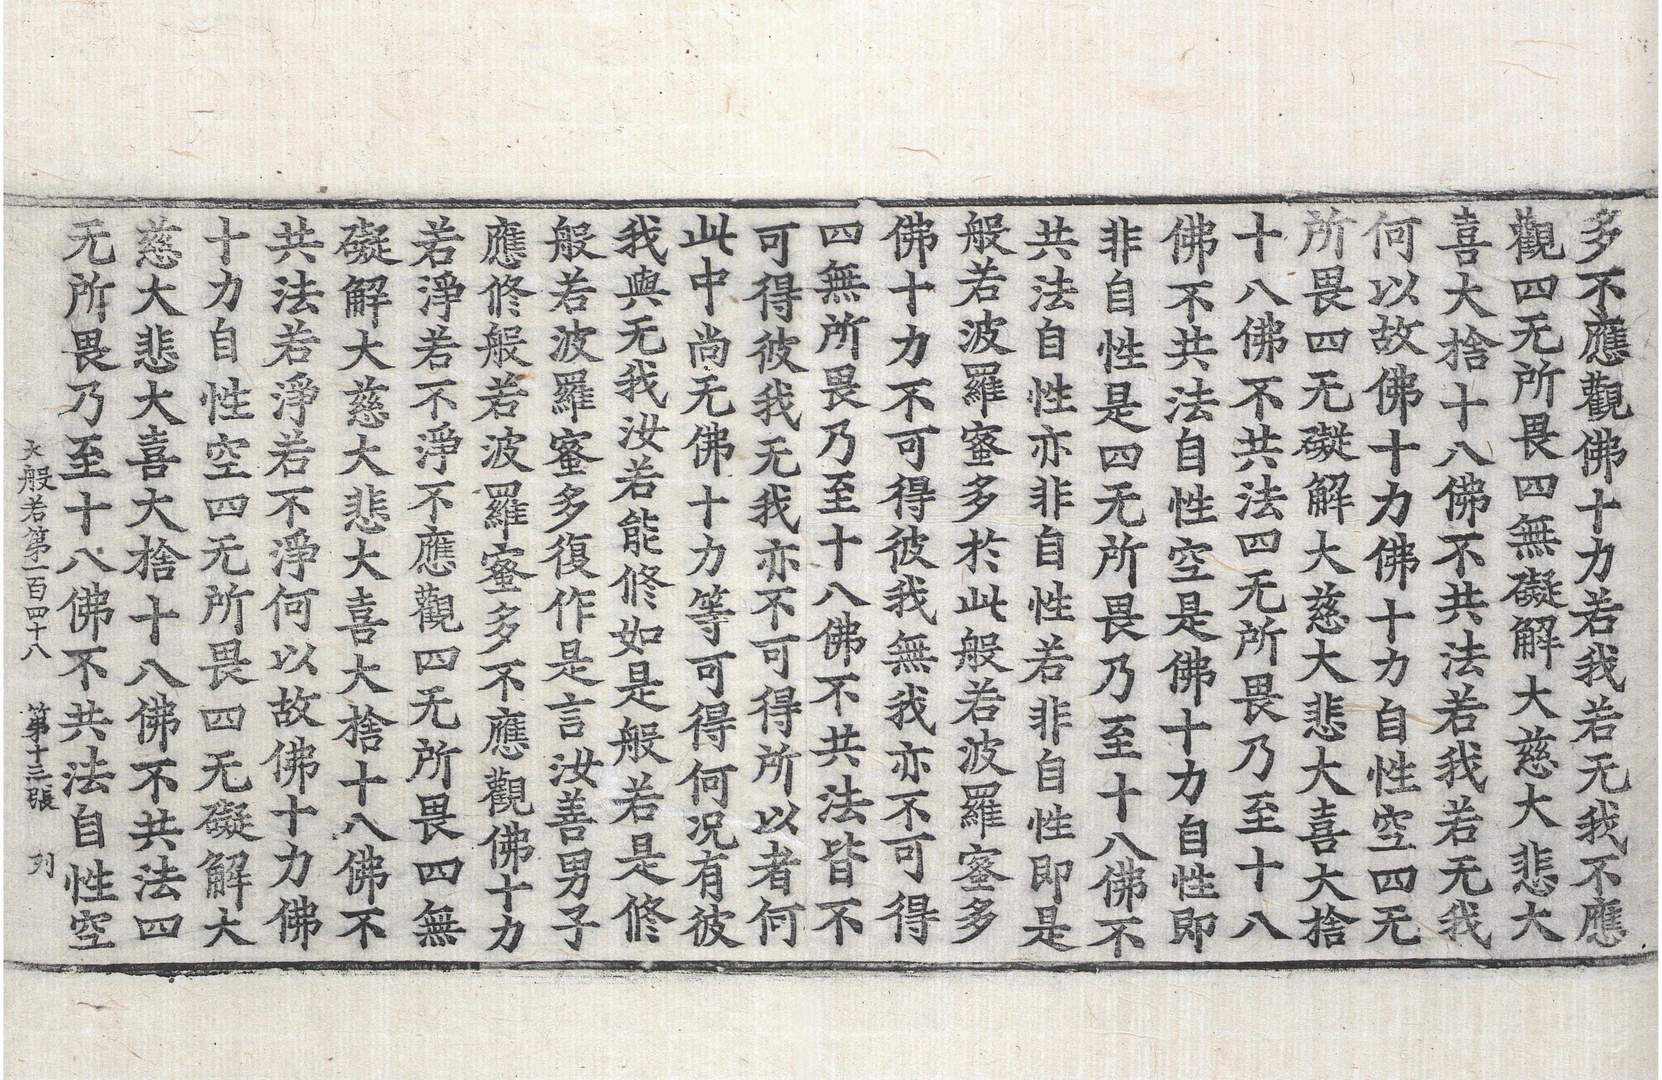 多不應觀佛十力若我若无我不應
觀四无所畏四無礙解大慈大悲大
喜大捨十八佛不共法若我若无我
何以故佛十力佛十力自性空四无
所畏四无礙解大慈大悲大喜大捨
十八佛不共法四无所畏乃至十八
佛不共法自性空是佛十力自性即
非自性是四无所畏乃至十八佛不
共法自性亦非自性若非自性即是
般若波羅蜜多於此般若波羅蜜多
佛十力不可得彼我無我亦不可得
四無所畏乃至十八佛不共法皆不
可得彼我无我亦不可得所以者何
此中尚无佛十力等可得何況有彼
我與无我汝若能修如是般若是修
般若波羅蜜多復作是言汝善男子
應修般若波羅蜜多不應觀佛十力
若淨若不淨不應觀四无所畏四無
礙解大慈大悲大喜大捨十八佛不
共法若淨若不淨何以故佛十力佛
十力自性空四无所畏四无礙解大
慈大悲大喜大捨十八佛不共法四
无所畏乃至十八佛不共法自性空
大般若第一百四十八 第十三張 列